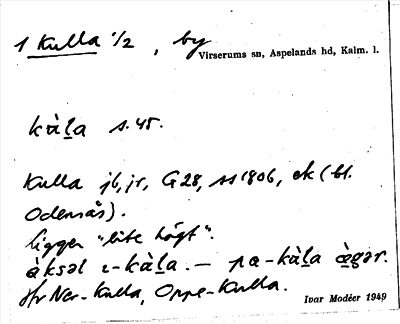 1 Kulla 1/2, by
Virserums sn, Aspelands hd, Kalm. l.
kàl̲a s. 45.
Kulla jb, jr, G28, ss 1806, ek (bl.
Odensås).
ligger "lite högt".
àksəl i-kàl̲a. — pa-kàl̲a àgər.
Jfr Ner-Kulla, Oppe-Kulla.
Ivar Modéer 1949